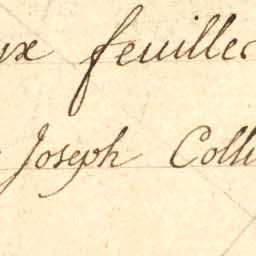 ux feuilles
Joseph Coll